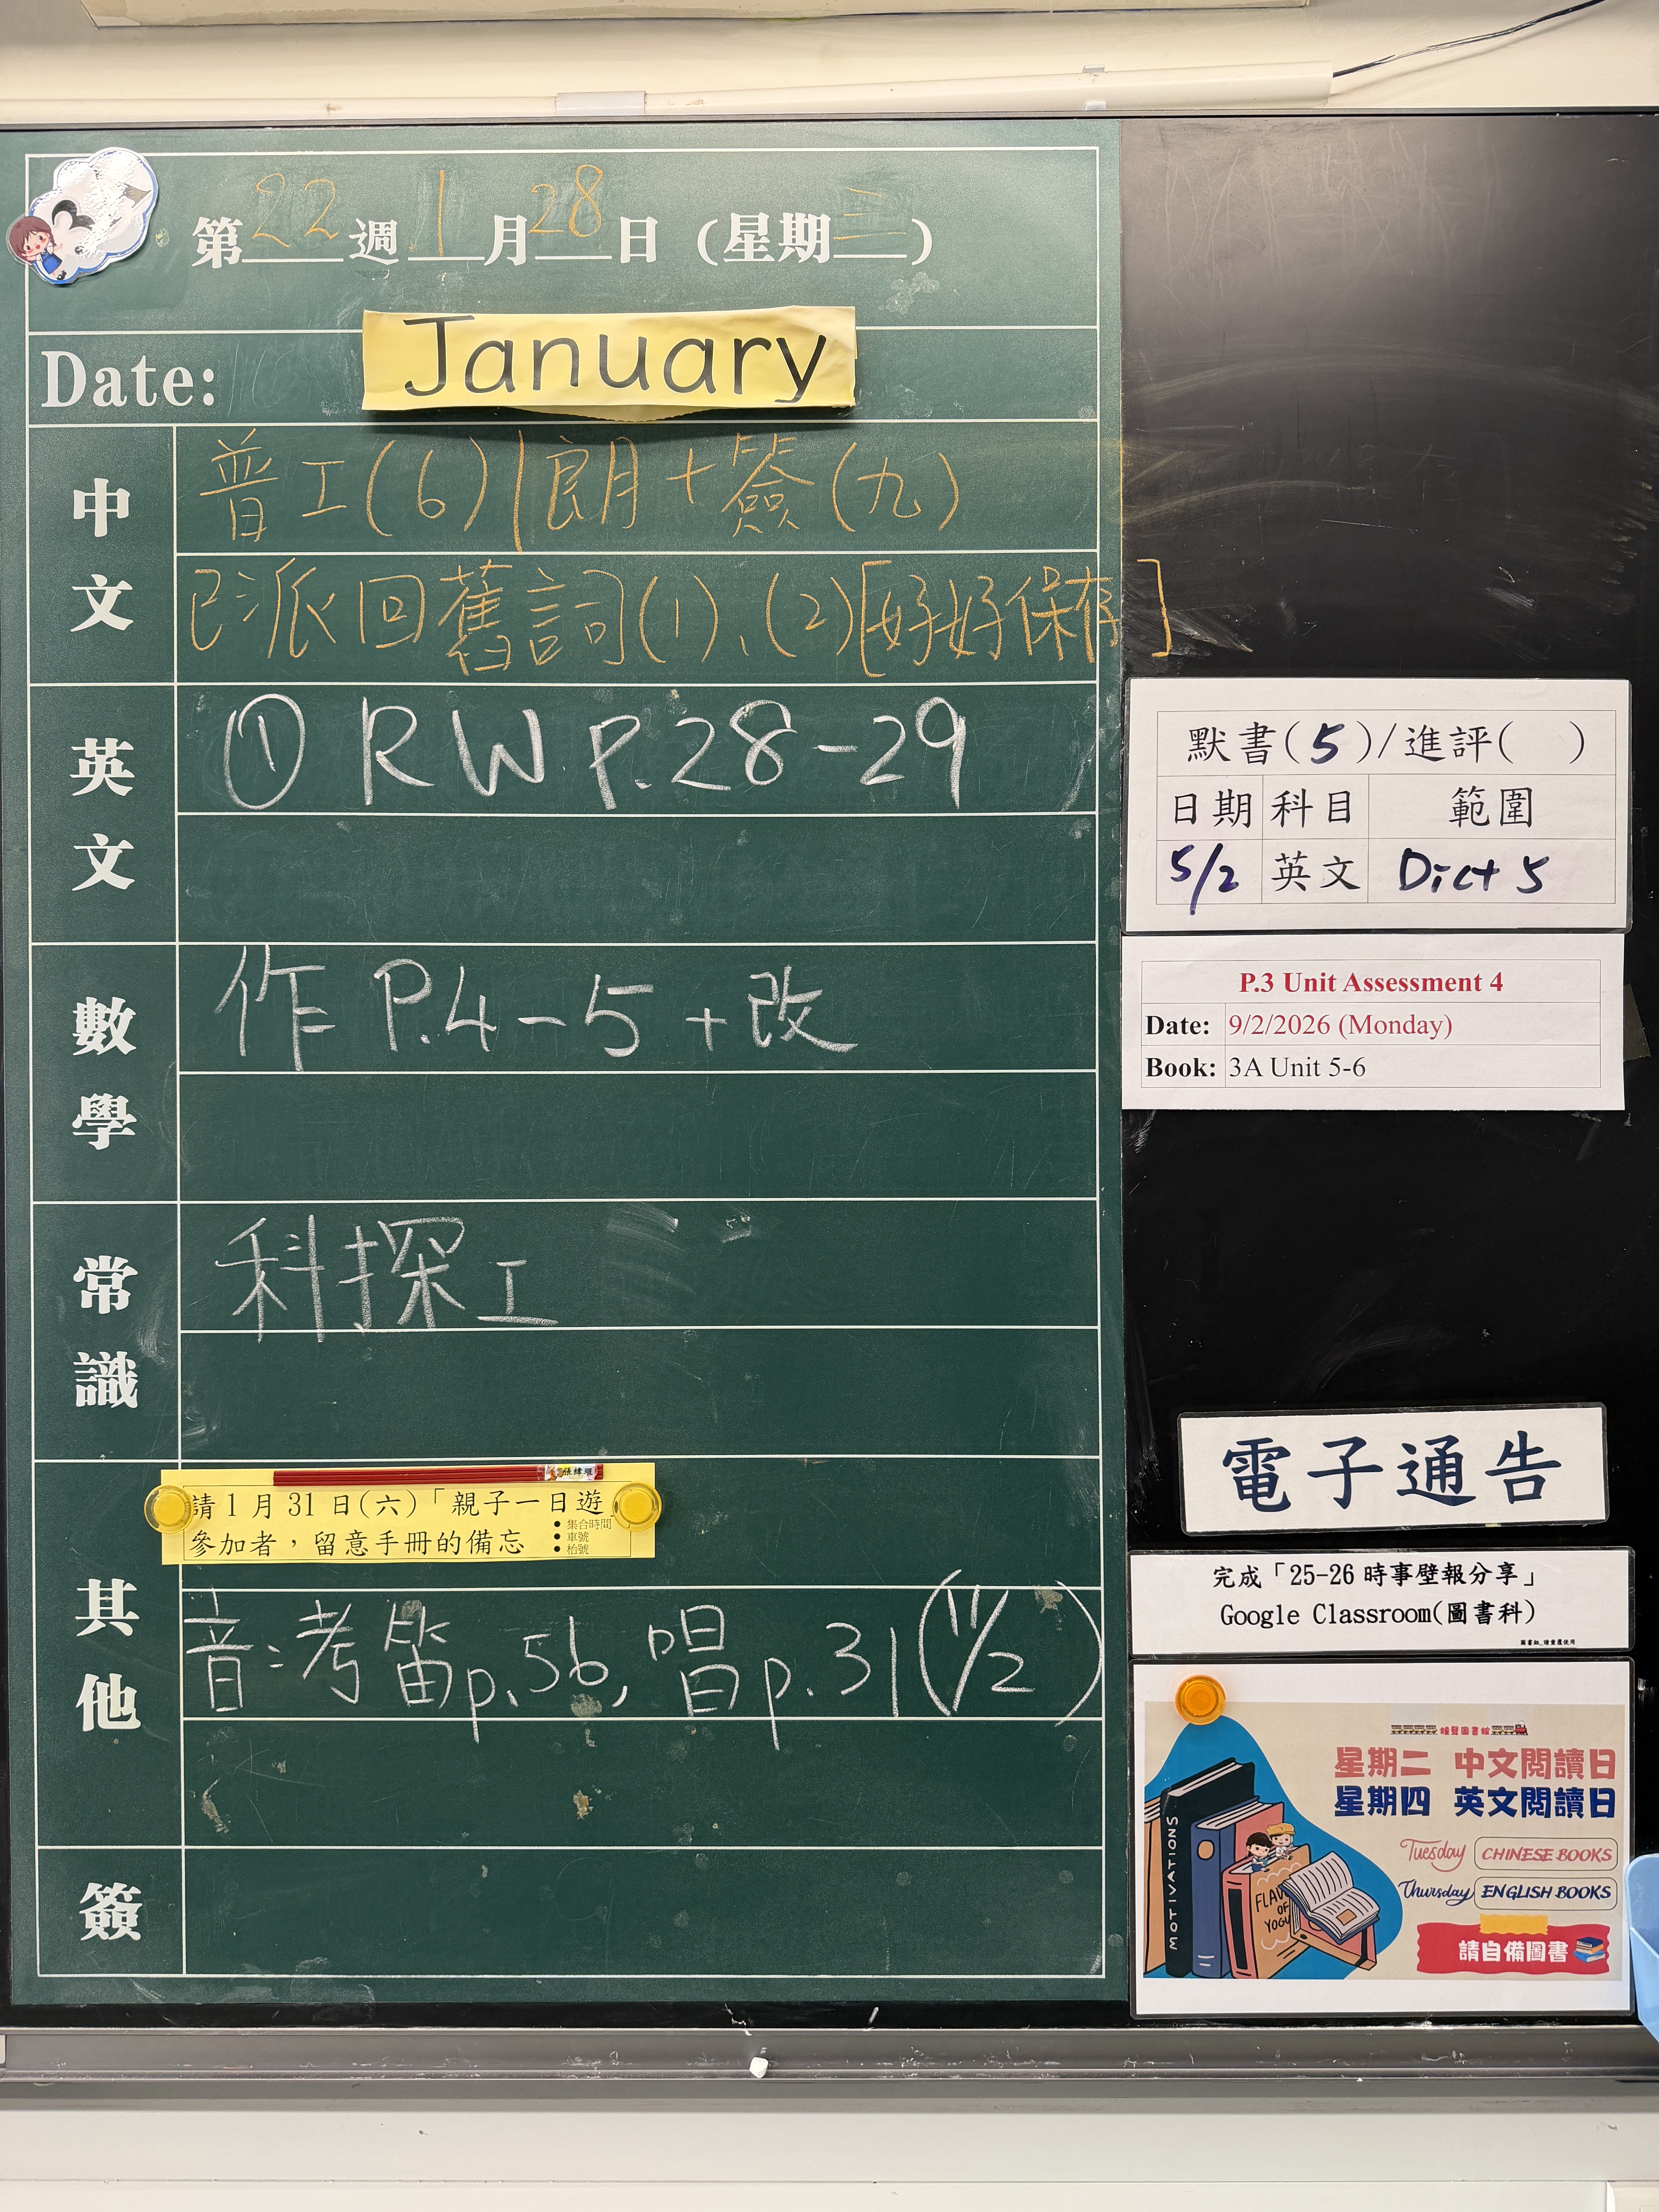 3
第22週1月28日(星期三)
Date: January
中文
普工(6)|朗+簽(九)
已派回舊詞(1)、(2)[好好保存]
英文
① RW P.28-29
數學
作 P.4-5 +改
常識
科探工
其他
請1月31日(六)「親子一日遊」
參加者，留意手冊的備忘
● 集合時間
● 車號
● 枱號
音:考笛p.56, 唱p.31(11/2)
簽
默書(5)/進評( )
日期 科目 範圍
5/2 英文 Dict 5
P.3 Unit Assessment 4
Date: 9/2/2026 (Monday)
Book: 3A Unit 5-6
電子通告
完成「25-26時事壁報分享」
Google Classroom(圖書科)
星期二 中文閱讀日
星期四 英文閱讀日
Tuesday CHINESE BOOKS
Thursday ENGLISH BOOKS
請自備圖書
MOTIVATIONS
FLAV
OF
YOGU